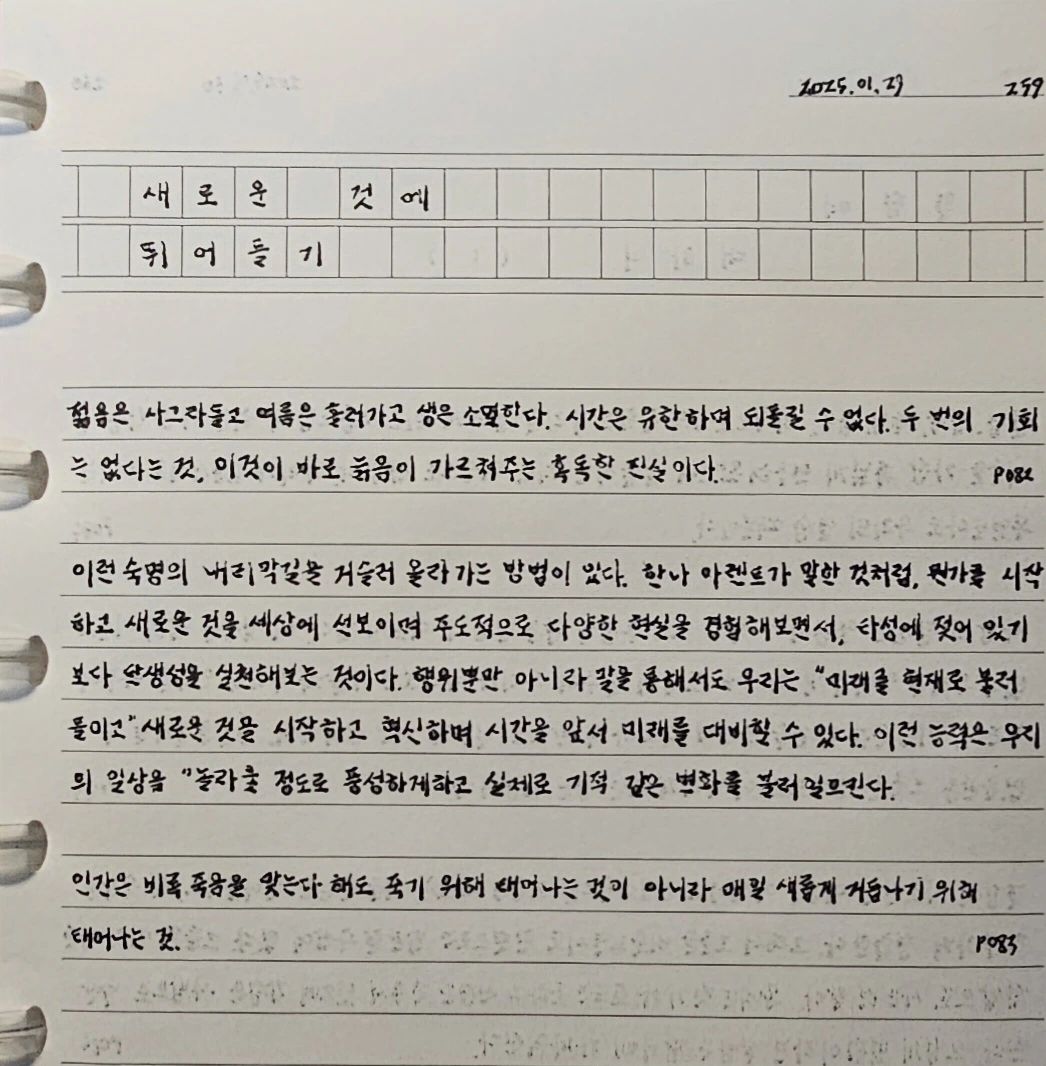 2025.01.29 259
새로운 것에
뛰어들기
젊음은 사그라들고 여름은 흘러가고 생은 소멸한다. 시간은 유한하며 되돌릴 수 없다. 두 번의 기회
는 없다는 것, 이것이 바로 늙음이 가르쳐주는 혹독한 진실이다. P082
이런 숙명의 내리막길을 거슬러 올라가는 방법이 있다. 한나 아렌트가 말한 것처럼, 뭔가를 시작
하고 새로운 것을 세상에 선보이며 주도적으로 다양한 현실을 경험해보면서, 타성에 젖어 있기
보다 탄생성을 실천해보는 것이다. 행위뿐만 아니라 말을 통해서도 우리는 "미래를 현재로 불러
들이고" 새로운 것을 시작하고 혁신하며 시간을 앞서 미래를 대비할 수 있다. 이런 능력은 우리
의 일상을 "놀라울 정도로 풍성하게하고 실제로 기적 같은 변화를 불러일으킨다.
인간은 비록 죽음을 맞는다 해도 죽기 위해 태어나는 것이 아니라 매일 새롭게 거듭나기 위해
태어나는 것. P083